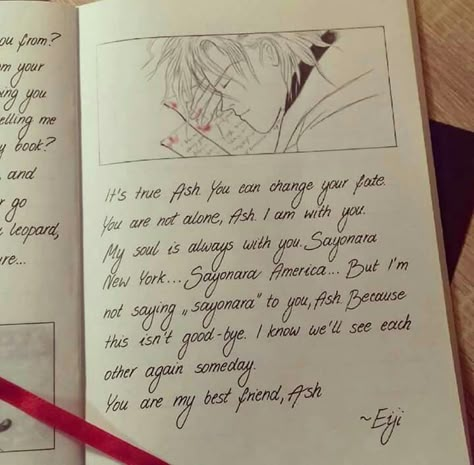 ou from?
m your
ing you
elling me
y book?
, and
r go
leopard,
re...
It's true Ash. You can change your fate.
You are not alone, Ash. I am with you.
My soul is always with you. Sayonara
New York... Sayonara America... But I'm
not saying „sayonara" to you, Ash. Because
this isn't good-bye. I know we'll see each
other again someday.
You are my best friend, Ash
~Eiji